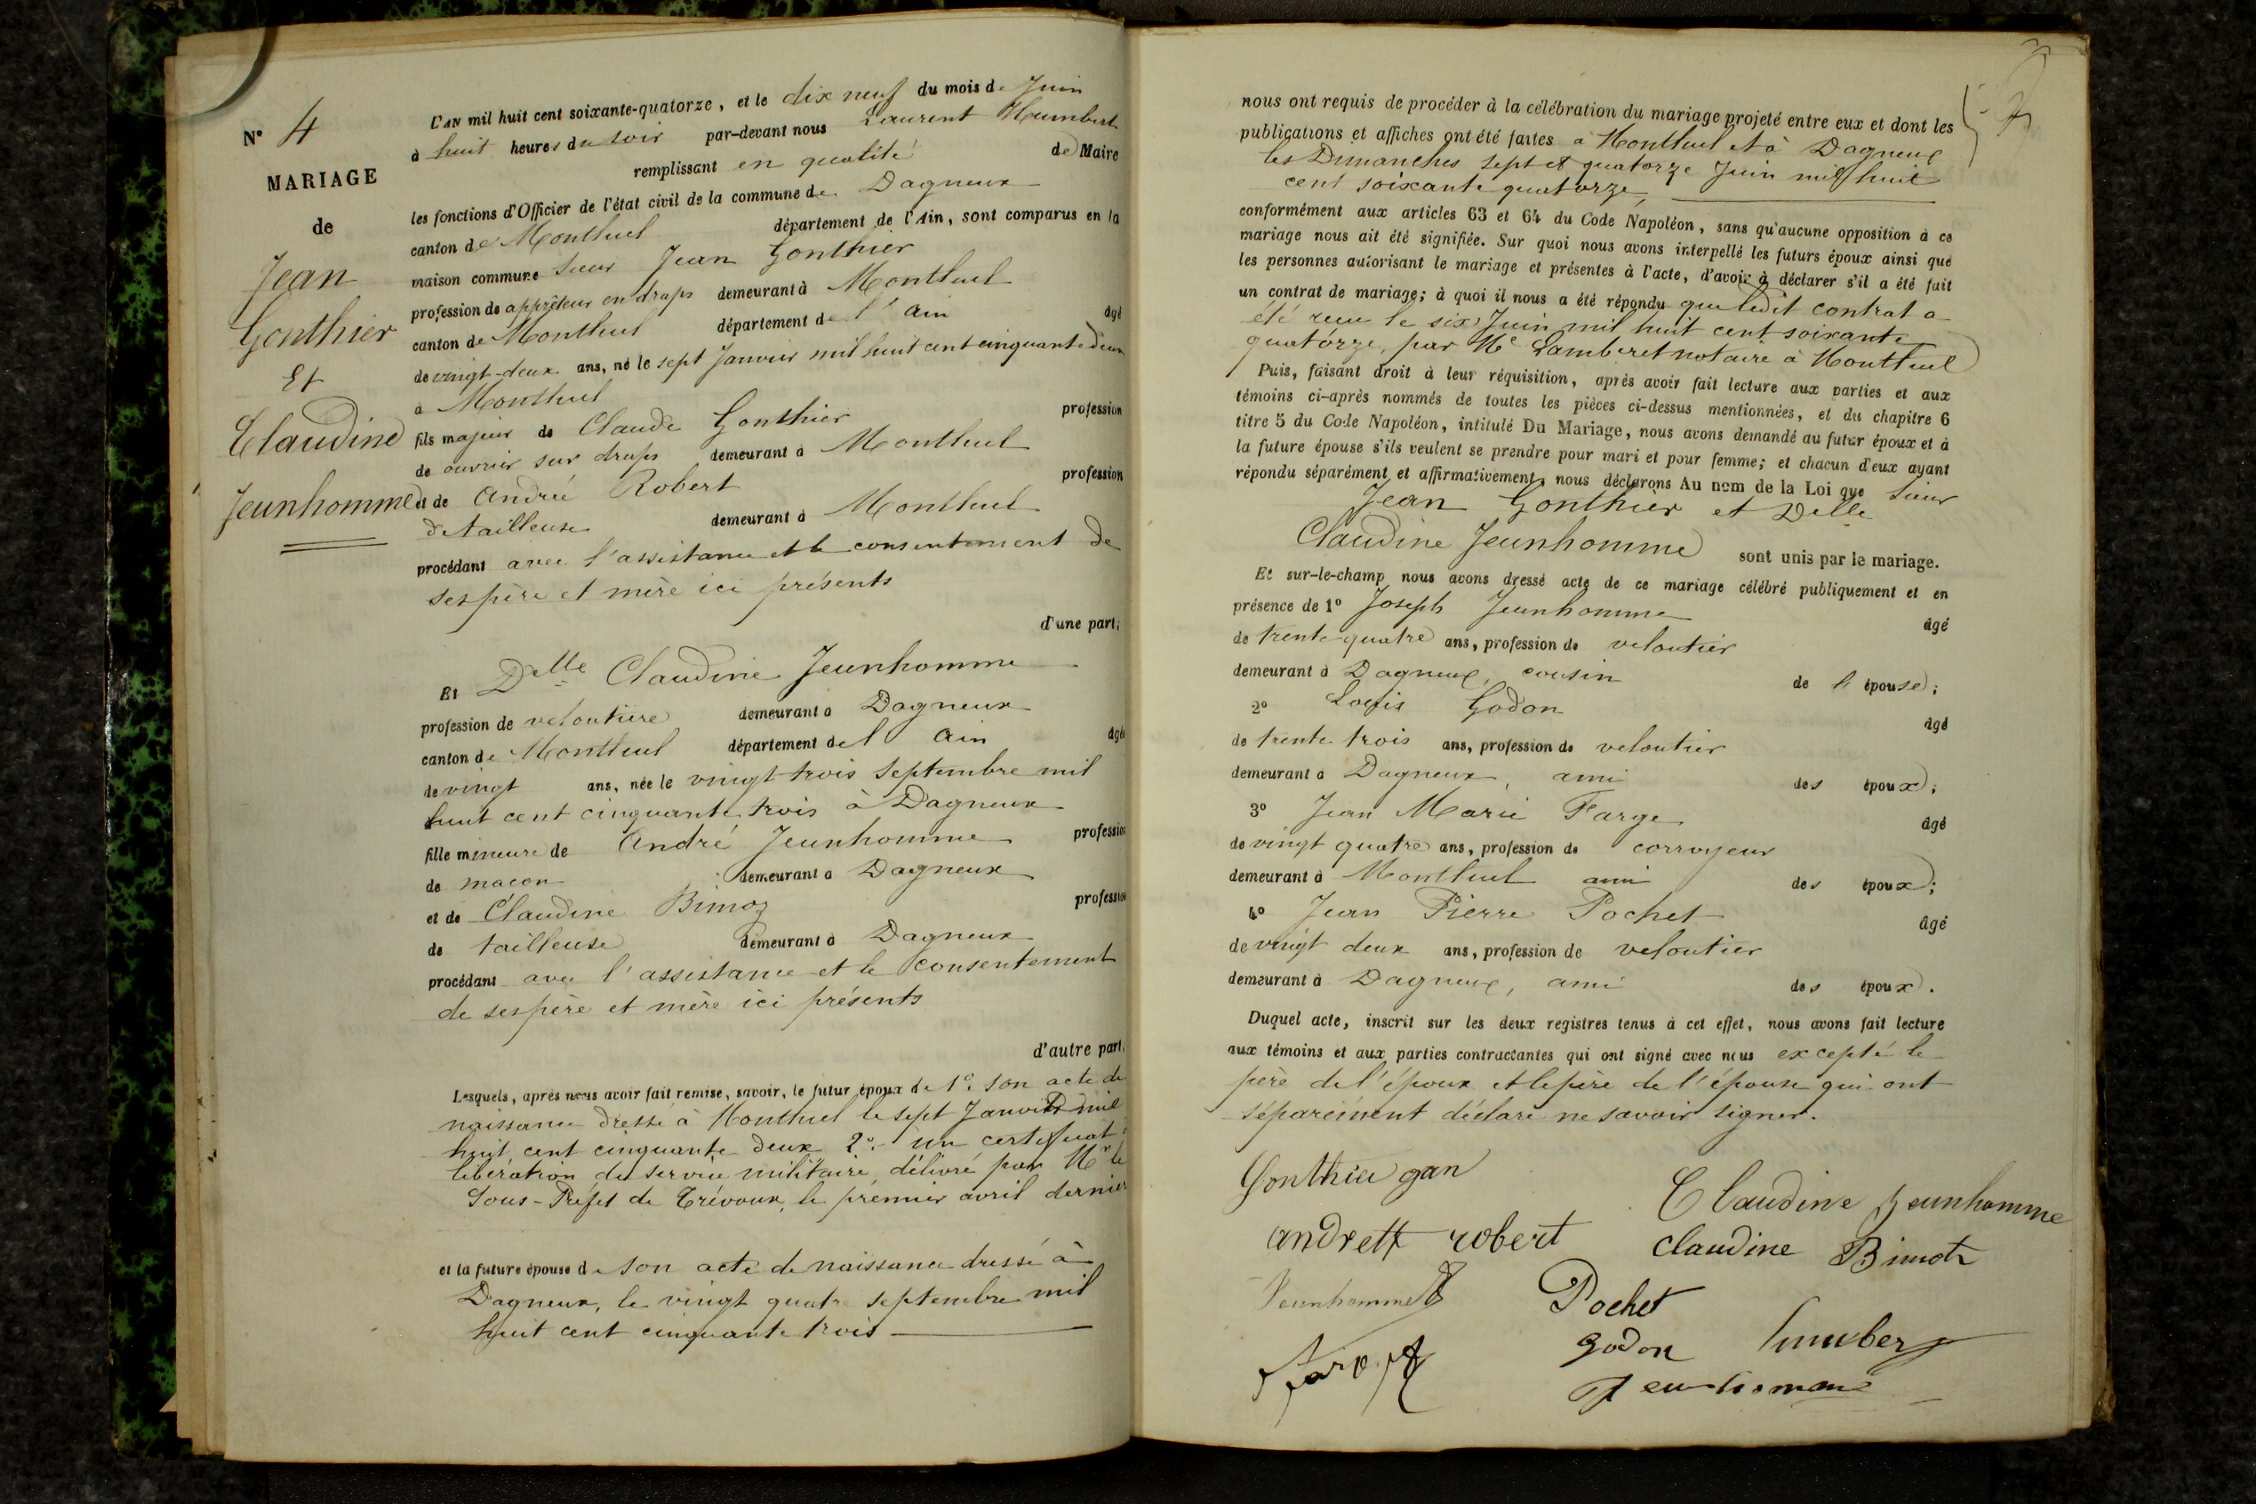 N° 4
MARIAGE
de
Jean
Gonthier
Et
Claudine
Jeunhomme
L'AN mil huit cent soixante-quatorze, et le dix neuf du mois de Juin
à huit heures du soir par-devant nous Laurent Humbert
remplissant en qualité de Maire
les fonctions d'Officier de l'état civil de la commune de Dagneux
canton de Montluel département de l'Ain, sont comparus en la
maison commune Sieur Jean Gonthier
profession de apprêteur en draps demeurant à Montluel
canton de Montluel département de l'Ain âgé
de vingt-deux ans, né le sept Janvier mil huit cent cinquante deux
à Montluel
fils majeur de Claude Gonthier profession
de ouvrier sur draps demeurant à Montluel
et de André Robert profession
de tailleuse demeurant à Montluel
procédant avec l'assistance et le consentement de
ses père et mère ici présents
d'une part;
Et Delle Claudine Jeunhomme
profession de veloutière demeurant à Dagneux
canton de Montluel département de l'Ain âgée
de vingt ans, née le vingt trois Septembre mil
huit cent cinquante trois à Dagneux
fille mineure de André Jeunhomme profession
de maçon demeurant à Dagneux
et de Claudine Bimoz profession
de tailleuse demeurant à Dagneux
procédant avec l'assistance et le consentement
de ses père et mère ici présents
d'autre part.
Lesquels, après nous avoir fait remise, savoir, le futur époux de 1° son acte de
naissance dressé à Montluel le sept Janvier mil
huit cent cinquante deux 2° un certificat
libération du service militaire, délivré par Mr le
Sous-Préfet de Trévoux, le premier avril dernier
et la future épouse de son acte de naissance dressé à
Dagneux, le vingt quatre septembre mil
huit cent cinquante trois
nous ont requis de procéder à la célébration du mariage projeté entre eux et dont les
publications et affiches ont été faites à Montluel et à Dagneux
les Dimanches sept et quatorze Juin mil huit
cent soixante quatorze,
conformément aux articles 63 et 64 du Code Napoléon, sans qu'aucune opposition à ce
mariage nous ait été signifiée. Sur quoi nous avons interpellé les futurs époux ainsi que
les personnes autorisant le mariage et présentes à l'acte, d'avoir à déclarer s'il a été fait
un contrat de mariage; à quoi il nous a été répondu que ledit contrat a
été reçu le six Juin mil huit cent soixante
quatorze, par Me Lamberet notaire à Montluel
Puis, faisant droit à leur réquisition, après avoir fait lecture aux parties et aux
témoins ci-après nommés de toutes les pièces ci-dessus mentionnées, et du chapitre 6
titre 5 du Code Napoléon, intitulé Du Mariage, nous avons demandé au futur époux et à
la future épouse s'ils veulent se prendre pour mari et pour femme; et chacun d'eux ayant
répondu séparément et affirmativement, nous déclarons Au nom de la Loi que Sieur
Jean Gonthier et Delle
Claudine Jeunhomme sont unis par le mariage.
Et sur-le-champ nous avons dressé acte de ce mariage célébré publiquement et en
présence de 1° Joseph Jeunhomme âgé
de trente quatre ans, profession de veloutier
demeurant à Dagneux, cousin de l'épouse;
2° Louis Godon âgé
de trente trois ans, profession de veloutier
demeurant à Dagneux, ami des époux;
3° Jean Marie Farge âgé
de vingt quatre ans, profession de corroyeur
demeurant à Montluel ami des époux;
4° Jean Pierre Pochet âgé
de vingt deux ans, profession de veloutier
demeurant à Dagneux, ami des époux.
Duquel acte, inscrit sur les deux registres tenus à cet effet, nous avons fait lecture
aux témoins et aux parties contractantes qui ont signé avec nous excepté le
père de l'époux et le père de l'épouse qui ont
séparément déclaré ne savoir signer.
Gonthier gan
Claudine Jeunhomme
andrett robert
Claudine Bimoz
Jeunhomme
Pochet
Godon
Humbert
Farge
Jeunhomme